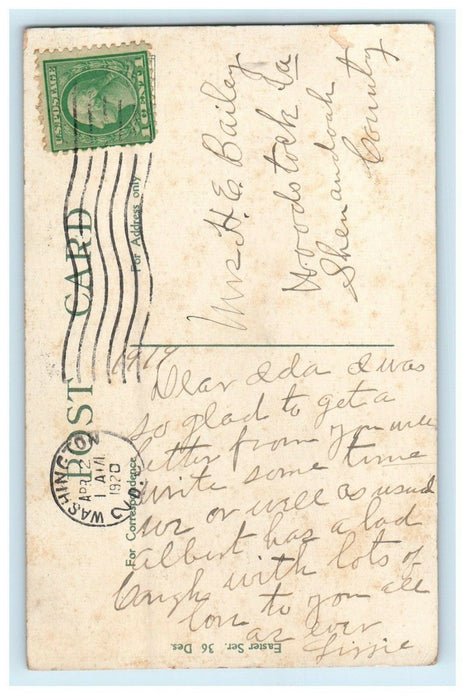 U.S. POSTAGE
1 CENT 1
POST CARD
For Address only
Mrs H. E. Bailey
Woodstock Va
Shenandoah
County
WASHINGTON
APR 2
1 AM
1920
D.
For Correspondence
1919
Dear Ida I was
so glad to get a
letter from you will
write some time
we or well as usual
Albert has a bad
cough with lots of
love to you all
as ever
Lizzie
Easter Ser. 36 Des.